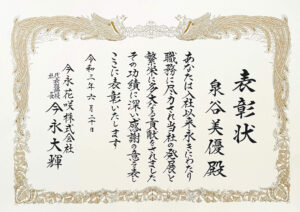 表彰状
泉谷美優殿
あなたは入社以来永きにわたり
職務に尽力され当社の発展と
繁栄に多大なる貢献をされました
その功績に深い感謝の意を表し
ここに表彰いたします
令和三年六月二十日
今永花咲株式会社
代表取締役
社長
今永大輝